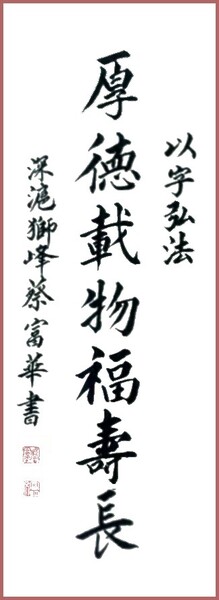 以字弘法
厚德載物福壽長
深滬獅峰蔡富華書